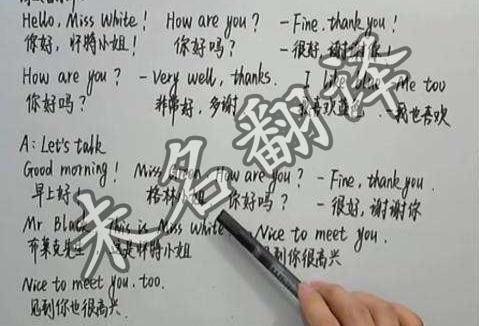 Hello, Miss White! How are you? - Fine, thank you!
你好，怀特小姐！ 你好吗？ - 很好，谢谢你！
How are you? - Very well, thanks. I like blue. Me too
你好吗？ 非常好，多谢 我喜欢蓝色 - 我也喜欢
A: Let's talk
Good morning! Miss Green, How are you? - Fine, thank you.
早上好！ 格林小姐 你好吗？ - 很好，谢谢你
Mr Black, This is Miss White. Nice to meet you.
布莱克先生 这是怀特小姐 见到你很高兴
Nice to meet you, too.
见到你也很高兴
未名翻译